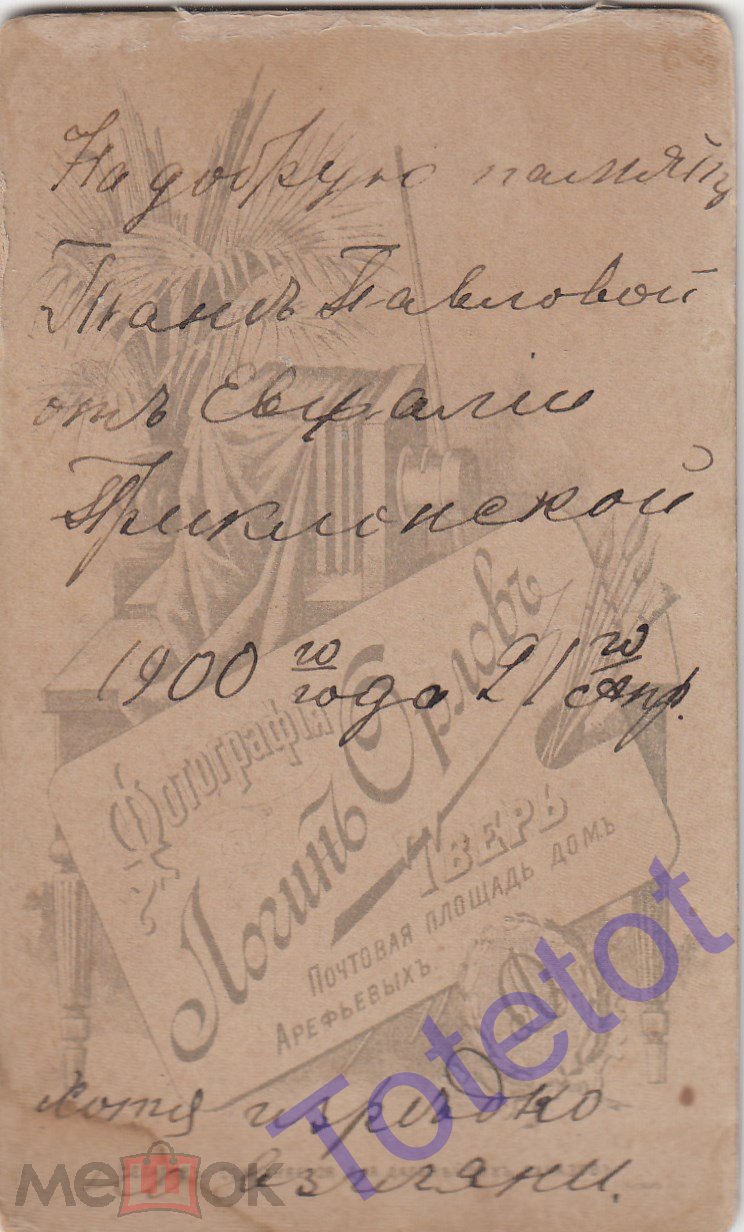 На добрую память
Танѣ Павловой
отъ Евфалии
Приклонской
1900 го года 21 го Апр.
Фотографія
Логинъ Орловъ
ТВЕРЬ
ПОЧТОВАЯ ПЛОЩАДЬ ДОМЪ
АРЕФЬЕВЫХЪ.
Хотя изрѣдко
взгляни.
Totetot
мешок